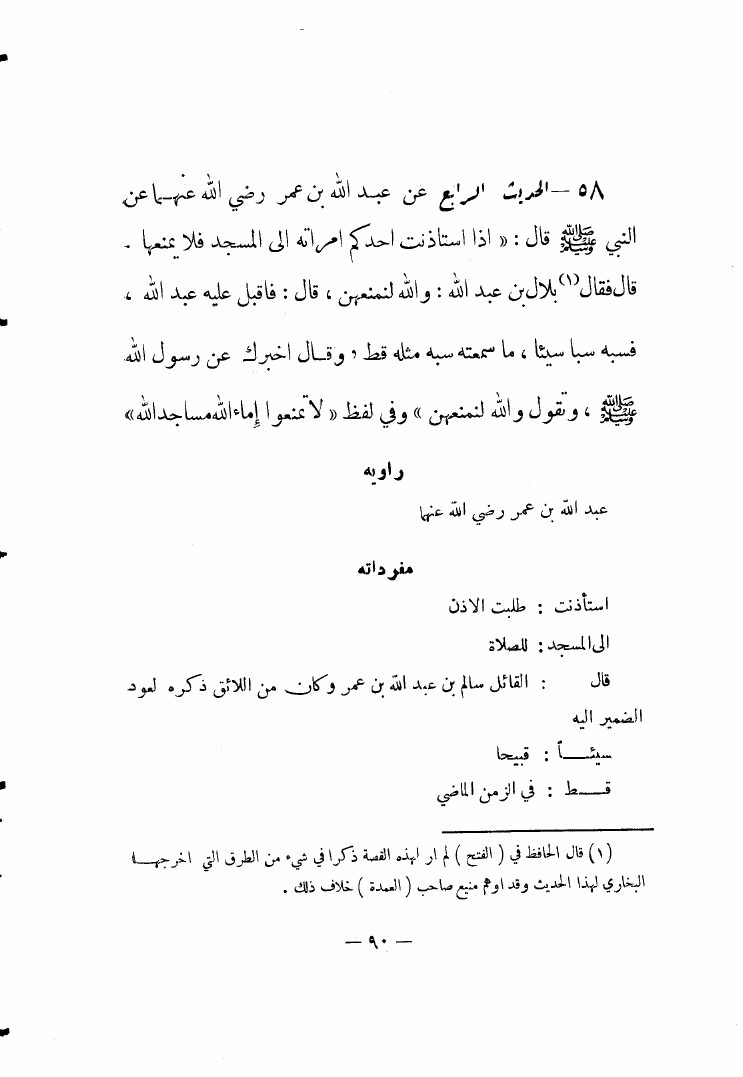 ٥٨ – الحديث الرابع عن عبد الله بن عمر رضي الله عنهما عن
النبي ﷺ قال : « اذا استاذنت احدكم امراته الى المسجد فلا يمنعها .
قال فقال (١) بلال بن عبد الله : والله لنمنعهن ، قال : فاقبل عليه عبد الله ،
فسبه سبا سيئا ، ما سمعته سبه مثله قط ، وقال اخبرك عن رسول الله
ﷺ ، وتقول والله لنمنعهن » وفي لفظ « لا تمنعوا إماء الله مساجد الله »
راويه
عبد الله بن عمر رضي الله عنهما
مفرداته
استأذنت : طلبت الاذن
الى المسجد : للصلاة
قال : القائل سالم بن عبد الله بن عمر وكان من اللائق ذكره لعود
الضمير اليه
سيئـــاً : قبيحا
قـــط : في الزمن الماضي
(١) قال الحافظ في ( الفتح ) لم ار لهذه القصة ذكرا في شيء من الطرق التي اخرجهـــا
البخاري لهذا الحديث وقد اوهم صنيع صاحب ( العمدة ) خلاف ذلك .
— ٩٠ —